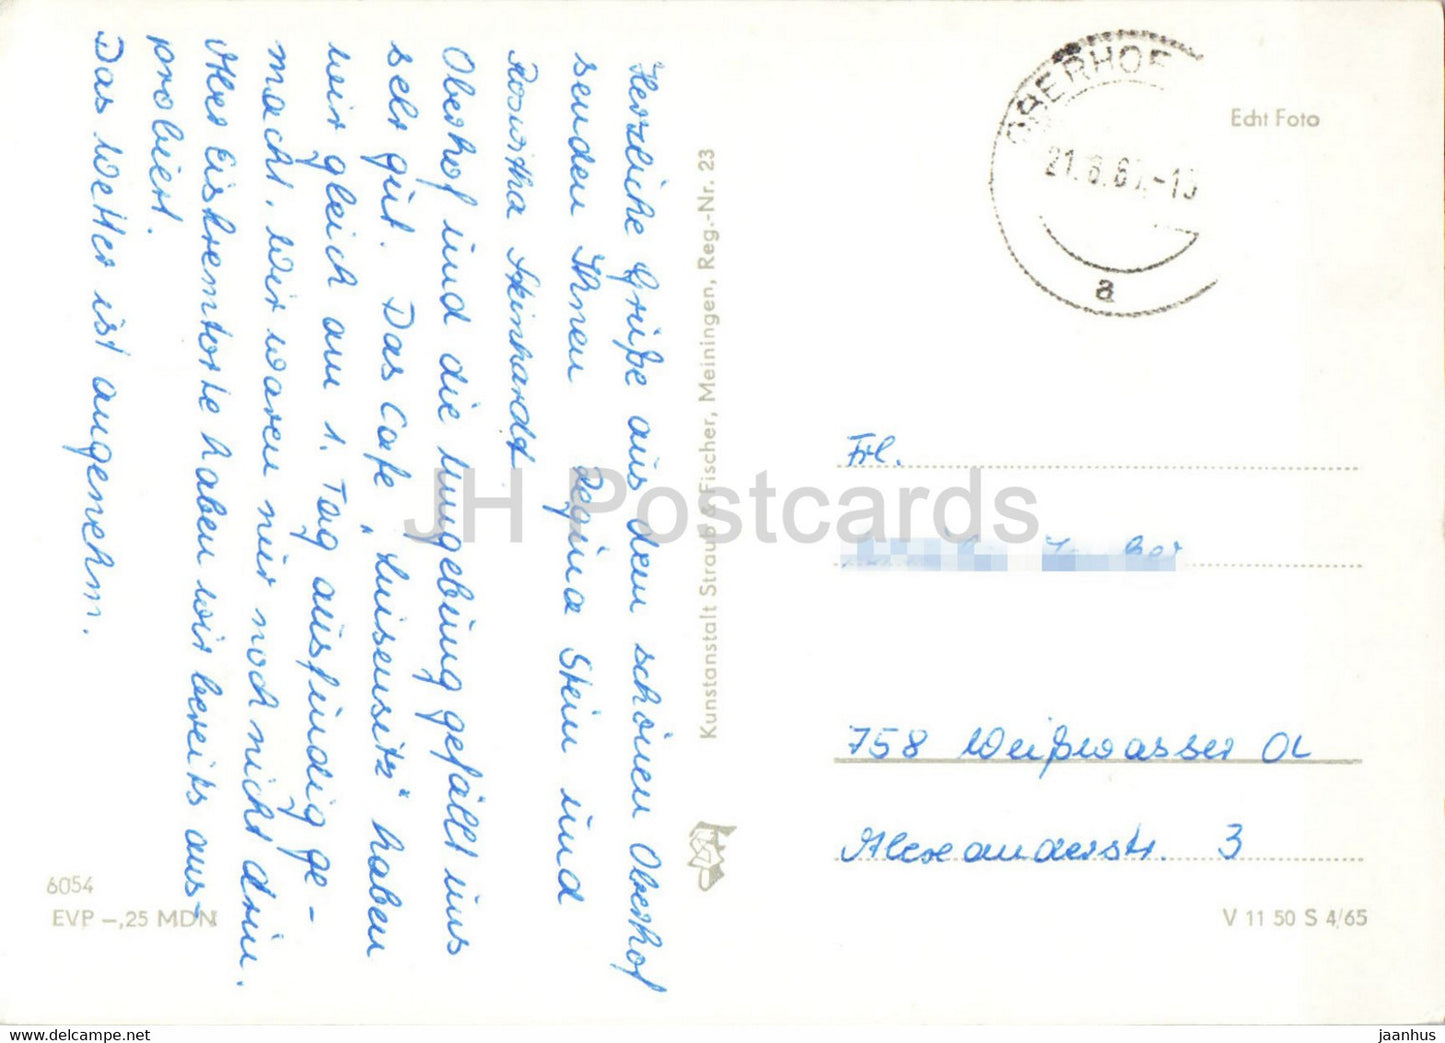 Herzliche Grüße aus dem schönen Oberhof
senden Ihnen Regina Stein und
Roswitha Steinhardt
Oberhof und die Umgebung gefällt uns
sehr gut. Das Cafe „Luisensitz" haben
wir gleich am 1. Tag ausfindig ge-
macht. Wir waren nur noch nicht drin.
Aber Eiskremtorte haben wir bereits aus-
probiert.
Das Wetter ist angenehm.
Kunstanstalt Straub & Fischer, Meiningen, Reg.-Nr. 23
6054
EVP -,25 MDN
OBERHOF
a
Echt Foto
Frl.
758 Weißwasser OL
Alexanderstr. 3
V 11 50 S 4/65
JH Postcards
www.delcampe.net
jaanhus